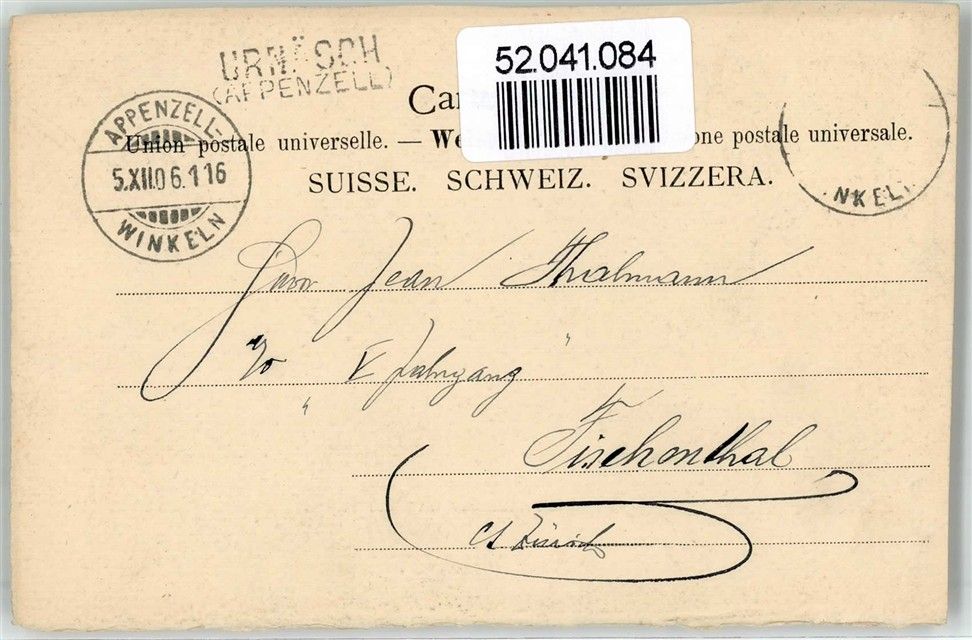 URNÄSCH
(APPENZELL)
52.041.084
APPENZELL-
5.XII.06.1 16
WINKELN
Union postale universelle. — We one postale universale.
SUISSE. SCHWEIZ. SVIZZERA.
NKEL
Herrn Jean Thalmann
V Jahrgang
Fischenthal
Ct Zürich